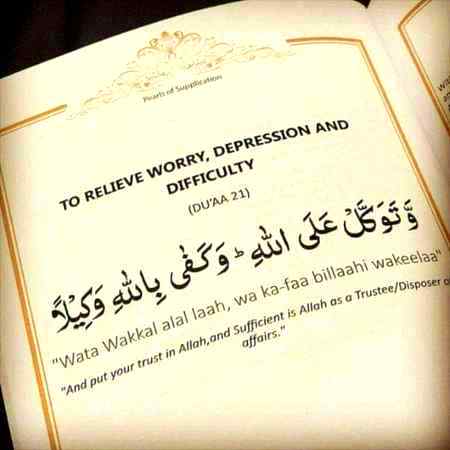 Pearls of Supplication
TO RELIEVE WORRY, DEPRESSION AND
DIFFICULTY
(DU'AA 21)
وَّ تَوَكَّلْ عَلَى اللهِ ؕ وَ كَفٰى بِاللهِ وَكِيْلًا
"Wata Wakkal alal laah, wa ka-faa billaahi wakeelaa"
"And put your trust in Allah,and Sufficient is Allah as a Trustee/Disposer o
affairs."